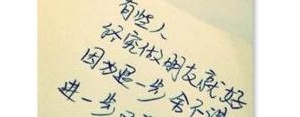 有些人
终究做朋友就好
因为退一步舍不得
进一步